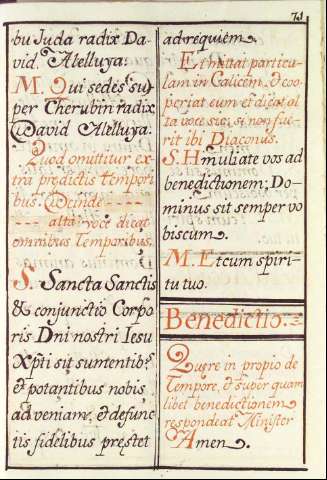 71
bu Juda radix Da-
vid. Alelluya.
M. Qui sedes su-
per Cherubin radix
David Alelluya.
Quod omittitur ex-
tra predictis tempori
bus. Deinde
alta voce dicat
omnibus temporibus.
S. Sancta Sanctis
& conjunctio Corpo
ris Dni nostri Iesu
Xpti sit sumentibꝰ
et potantibus nobis
ad veniam, et defunc
tis fidelibus pręstet
ad requiem.
Et mittat particu-
lam in Calicem, & coo-
periat eum et dicat al
ta voce sic, si non fue-
rit ibi Diaconus.
S. Humiliate vos ad
benedictionem; Do-
minus sit semper vo
biscum.
M. Et cum spiri-
tu tuo.
Benedictio.
Quęre in propio de
Tempore, & super quam
libet benedictionem
respondeat Minister
Amen.